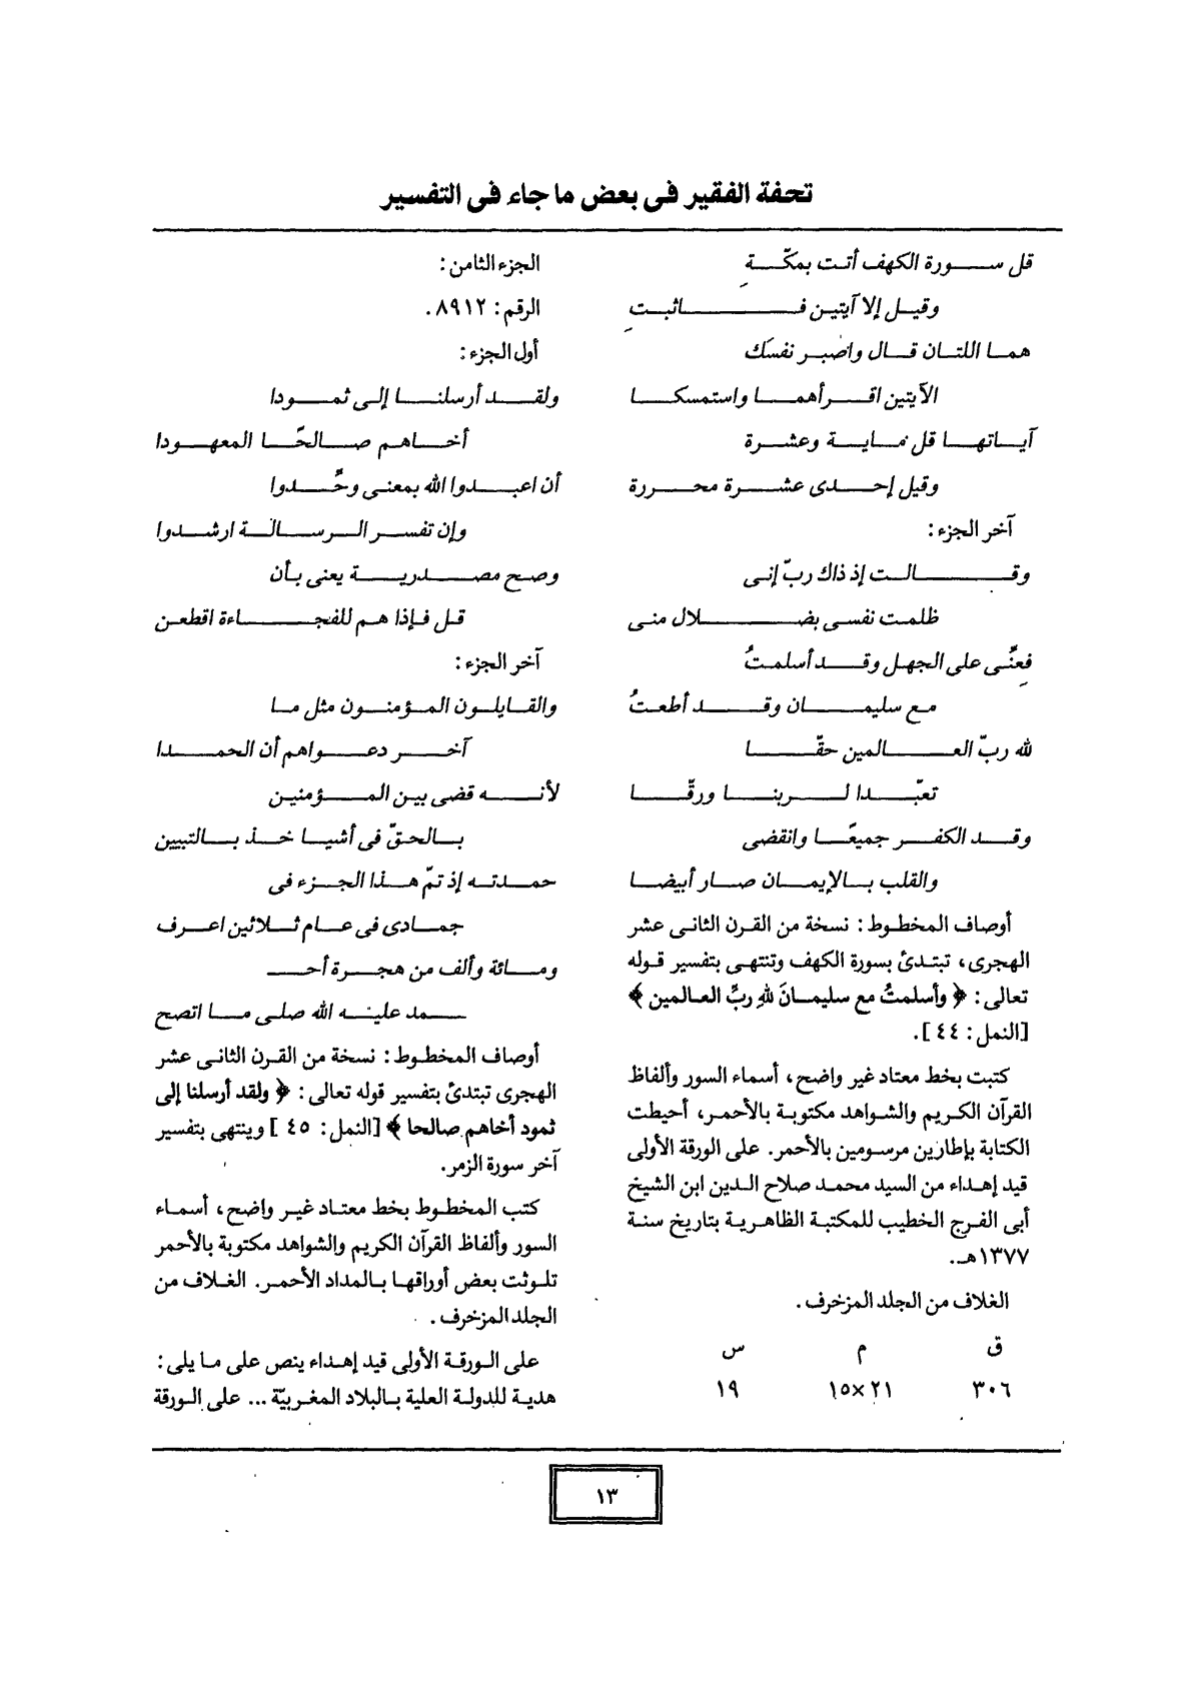 تحفة الفقير فى بعض ما جاء فى التفسير
قل سورة الكهف أتت بمكّةِ
وقيل إلا آيتين فاثبتِ
هما اللتان قال واصبر نفسك
الآيتين اقرأهما واستمسكا
آياتها قل ماية وعشرة
وقيل إحدى عشرة محررة
آخر الجزء:
وقالت إذ ذاك ربّ إنى
ظلمت نفسى بضلال منى
فعنِّى على الجهل وقد أسلمتُ
مع سليمان وقد أطعتُ
لله ربّ العالمين حقّا
تعبّدا لربنا ورقّا
وقد الكفر جميعًا وانقضى
والقلب بالإيمان صار أبيضا
أوصاف المخطوط: نسخة من القرن الثانى عشر
الهجرى، تبتدئ بسورة الكهف وتنتهى بتفسير قوله
تعالى: ﴿وأسلمتُ مع سليمانَ للهِ ربِّ العالمين﴾
[النمل: ٤٤].
كتبت بخط معتاد غير واضح، أسماء السور وألفاظ
القرآن الكريم والشواهد مكتوبة بالأحمر، أحيطت
الكتابة بإطارين مرسومين بالأحمر. على الورقة الأولى
قيد إهداء من السيد محمد صلاح الدين ابن الشيخ
أبى الفرج الخطيب للمكتبة الظاهرية بتاريخ سنة
١٣٧٧هـ.
الغلاف من الجلد المزخرف.
ق م س
٣٠٦ ٢١×١٥ ١٩
الجزء الثامن:
الرقم: ٨٩١٢.
أول الجزء:
ولقد أرسلنا إلى ثمودا
أخاهم صالحًا المعهودا
أن اعبدوا الله بمعنى وحِّدوا
وإن تفسر الرسالة ارشدوا
وصح مصدرية يعنى بأن
قل فإذا هم للفجاءة اقطعن
آخر الجزء:
والقايلون المؤمنون مثل ما
آخر دعواهم أن الحمدا
لأنه قضى بين المؤمنين
بالحقّ فى أشيا خذ بالتبيين
حمدته إذ تمّ هذا الجزء فى
جمادى فى عام ثلاثين اعرف
ومائة وألف من هجرة أحـ
ـمد عليه الله صلى ما اتضح
أوصاف المخطوط: نسخة من القرن الثانى عشر
الهجرى تبتدئ بتفسير قوله تعالى: ﴿ولقد أرسلنا إلى
ثمود أخاهم صالحا﴾ [النمل: ٤٥] وينتهى بتفسير
آخر سورة الزمر.
كتب المخطوط بخط معتاد غير واضح، أسماء
السور وألفاظ القرآن الكريم والشواهد مكتوبة بالأحمر
تلوثت بعض أوراقها بالمداد الأحمر. الغلاف من
الجلد المزخرف.
على الورقة الأولى قيد إهداء ينص على ما يلى:
هدية للدولة العلية بالبلاد المغربيّة ... على الورقة
١٣